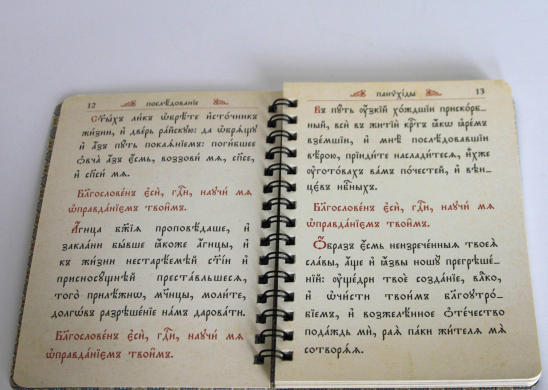 12 послѣ́дованїе
Ст҃ы́хъ ли́къ ѡ҆брѣ́те и҆сто́чникъ
жи́зни, и҆ две́рь ра́йскую: да ѡ҆брѧ́щу
и҆ а҆́зъ пу́ть покаѧ́нїемъ: поги́бшее
ѻ҆вча̀ а҆́зъ є҆́смь, воззови́ мѧ, сп҃се,
и҆ сп҃си́ мѧ.
Благослове́нъ є҆сѝ, гдⷭ҇и, научи́ мѧ
ѡ҆правда́нїемъ твои̑мъ.
А҆́гнца бж҃їѧ проповѣ́давше, и҆
закла́ни бы́вше ꙗ҆́коже а҆́гнцы, и҆
къ жи́зни нестарѣ́емѣй ст҃і́и и҆
присносу́щнѣй преста́вльшесѧ,
того̀ прилѣ́жнѡ, мч҃нцы, моли́те,
долгѡ́въ разрѣше́нїе на́мъ дарова́ти.
Благослове́нъ є҆сѝ, гдⷭ҇и, научи́ мѧ
ѡ҆правда́нїемъ твои̑мъ.
панѷхі́ды 13
Въ пу́ть ᲂу҆́зкїй хо́ждшїи приско́рб‐
ный, всѝ въ житїѝ крⷭ҇тъ ꙗ҆́кѡ ꙗ҆ре́мъ
взе́мшїи, и҆ мнѣ̀ послѣ́довавшїи
вѣ́рою, прїиди́те наслади́тесѧ, и҆̀хже
ᲂу҆гото́вахъ ва́мъ по́честей, и҆ вѣн‐
цє́въ нбⷭ҇ныхъ.
Благослове́нъ є҆сѝ, гдⷭ҇и, научи́ мѧ
ѡ҆правда́нїемъ твои̑мъ.
Ѻ҆́бразъ є҆́смь неизрече́нныѧ твоеѧ̀
сла́вы, а҆́ще и҆ ꙗ҆́звы ношу̀ прегрѣше́‐
нїй: ᲂу҆ще́дри твоѐ созда́нїе, влⷣко,
и҆ ѡ҆чи́сти твои́мъ благоутро́‐
бїемъ, и҆ возжелѣ́нное ѻ҆те́чество
пода́ждь мѝ, раѧ̀ па́ки жи́телѧ мѧ̀
сотворѧ́ѧ.